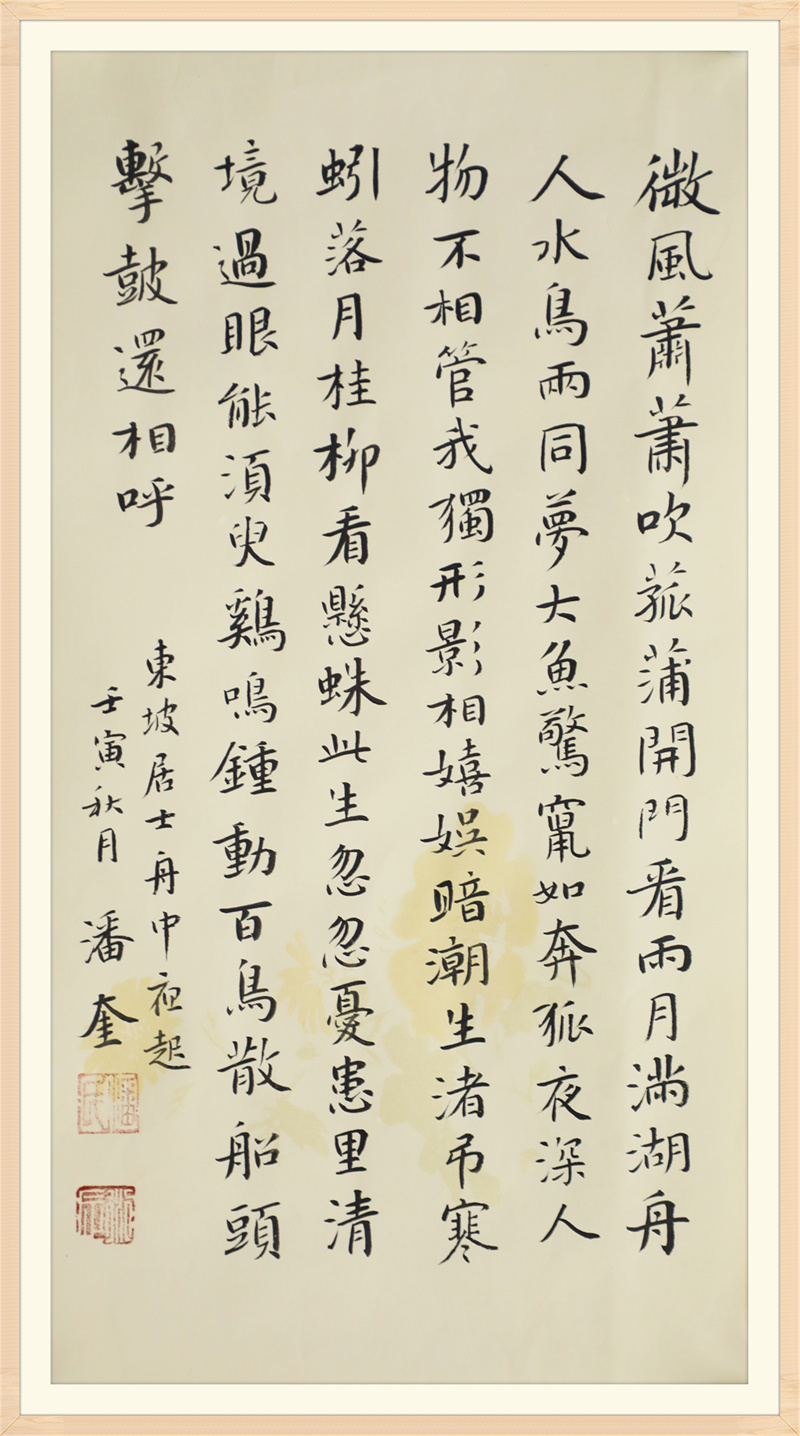 微風蕭蕭吹菰蒲開門看雨月滿湖舟
人水鳥兩同夢大魚驚竄如奔狐夜深人
物不相管我獨形影相嬉娛暗潮生渚弔寒
蚓落月桂柳看懸蛛此生忽忽憂患里清
境過眼能須臾鷄鳴鍾動百鳥散船頭
擊鼓還相呼
東坡居士舟中夜起
壬寅秋月 潘奎